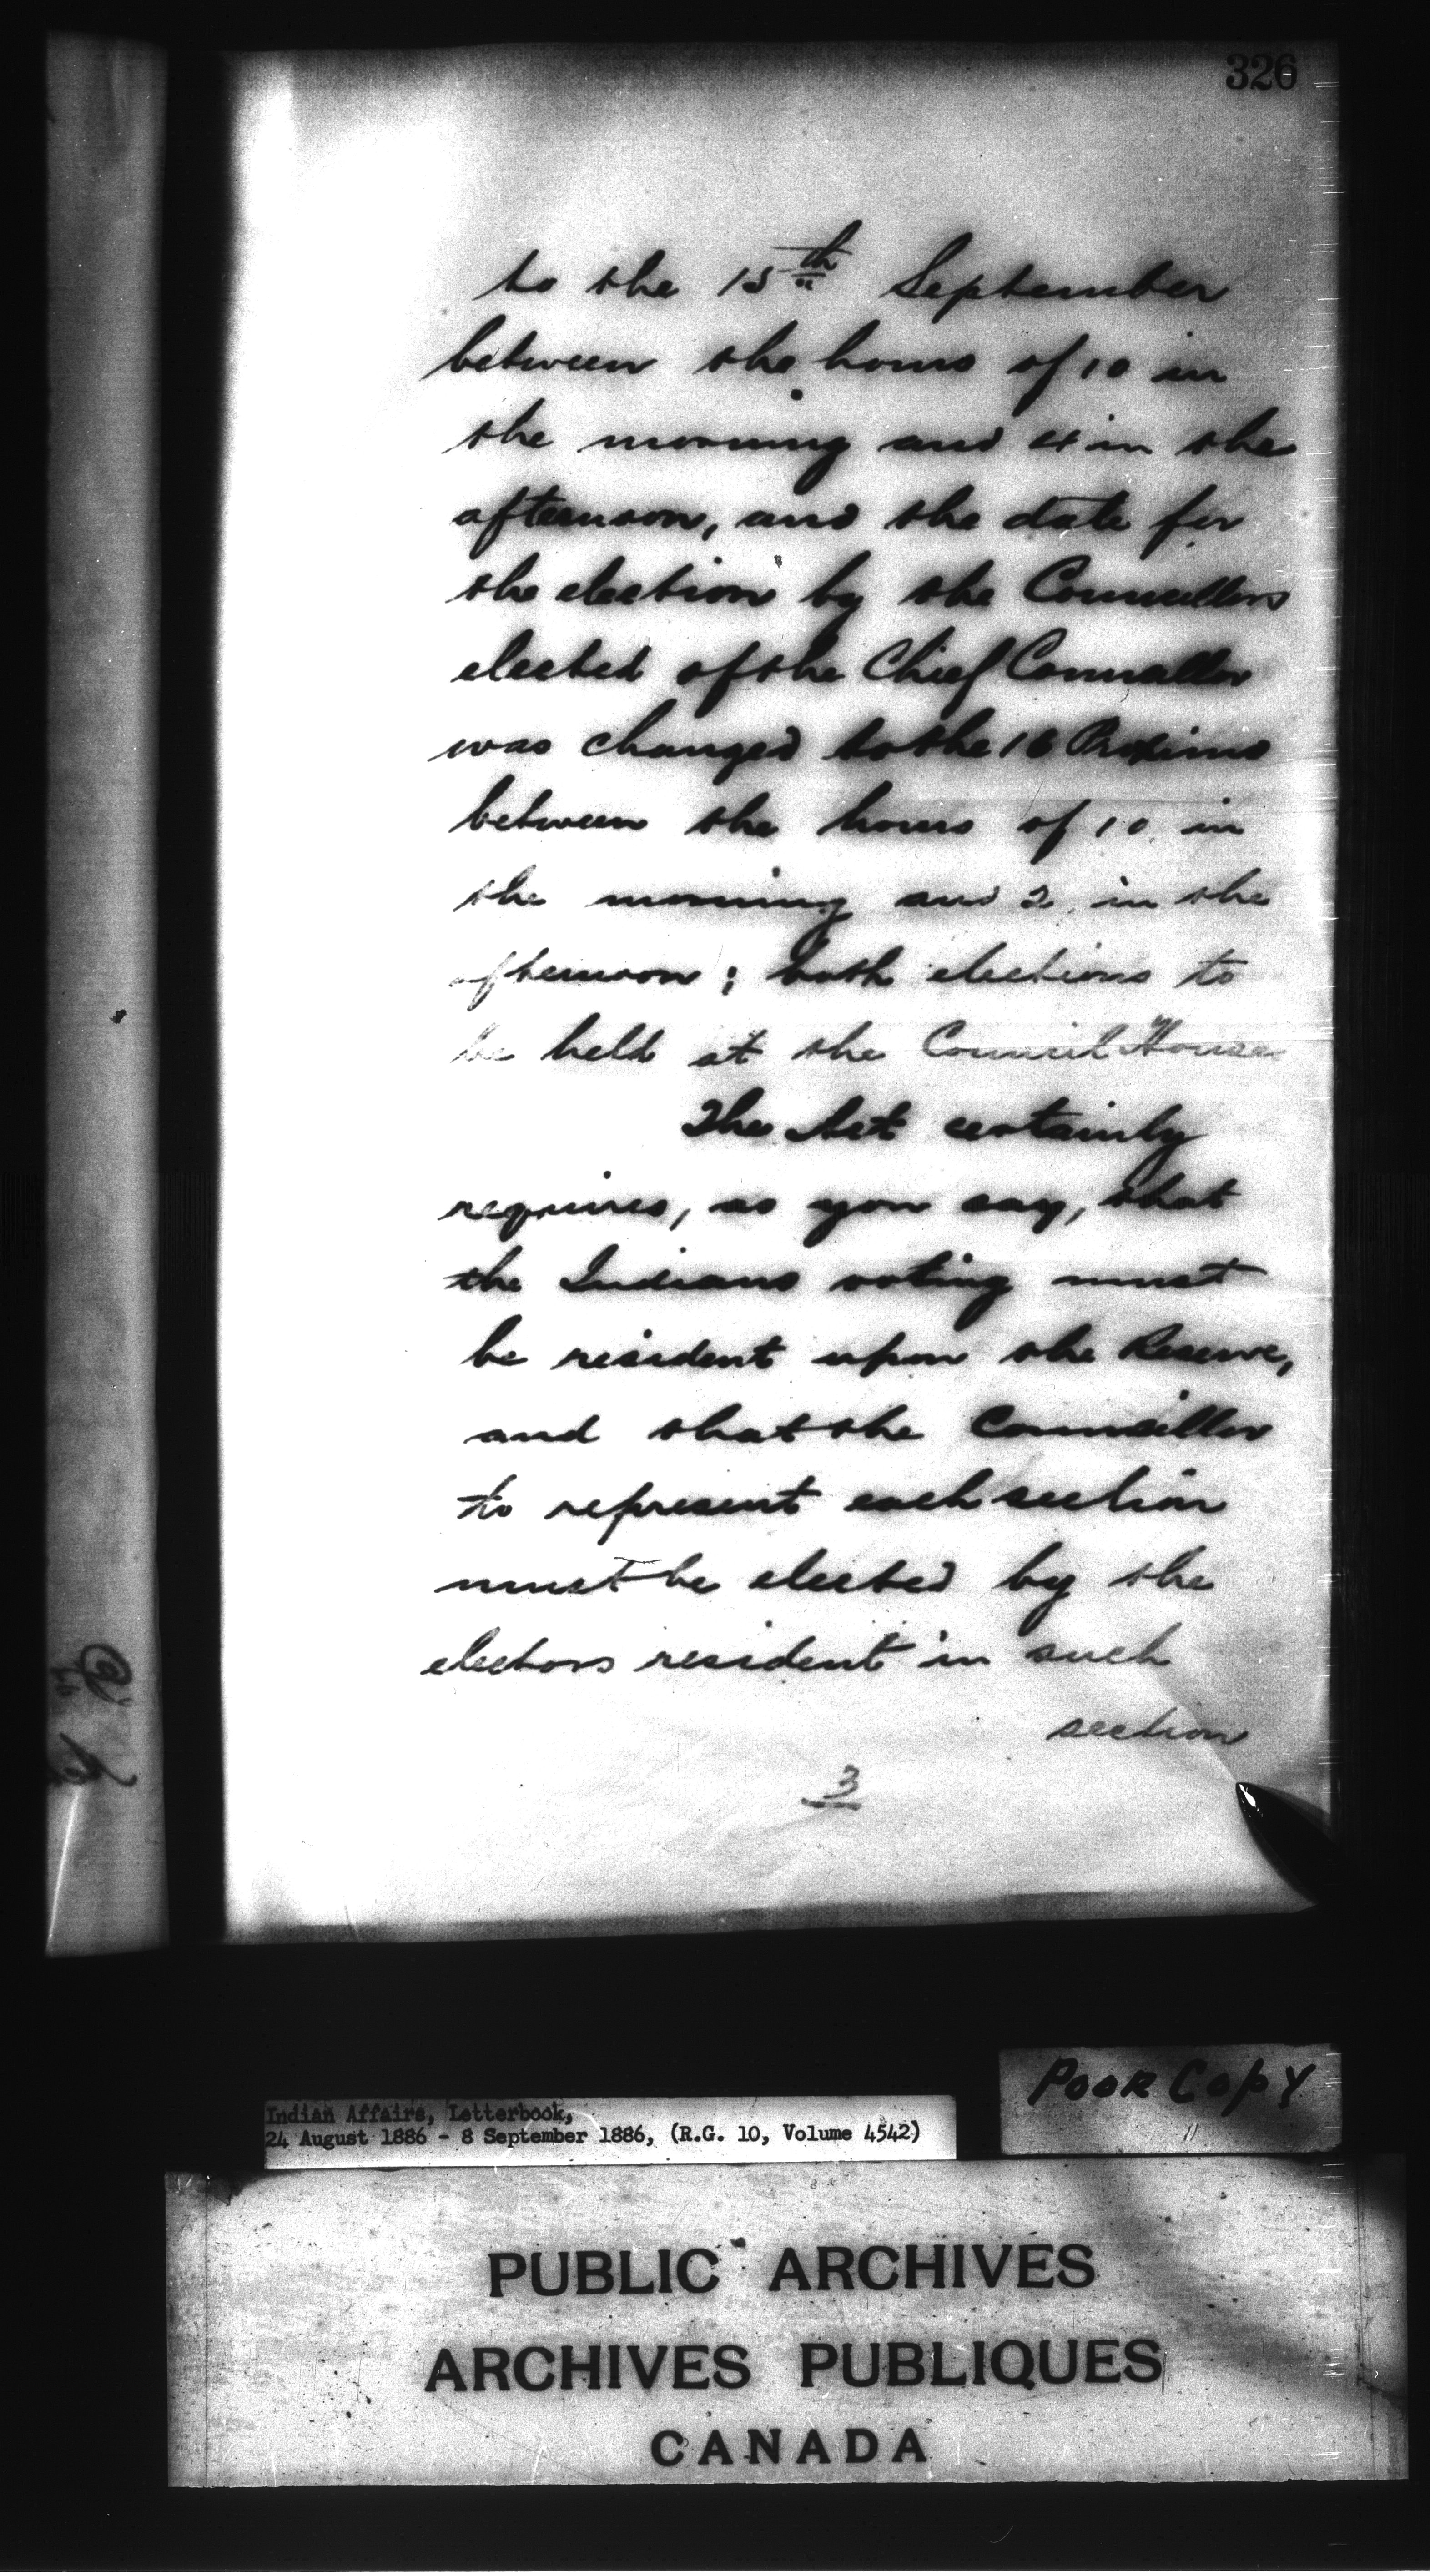 326
to the 15th September
between the hours of 10 in
the morning and 4 in the
afternoon, and the date for
the election by the Councillors
elected of the Chief Councillor
was changed to the 16 Proximo
between the hours of 10 in
the morning and 2 in the
afternoon; both elections to
be held at the Council House
The Act certainly
requires, as you say, that
the Indians voting must
be resident upon the Reserve,
and that the Councillor
to represent each section
must be elected by the
electors resident in such
section
3
POOR COPY
Indian Affairs, Letterbook,
24 August 1886 - 8 September 1886, (R.G. 10, Volume 4542)
PUBLIC ARCHIVES
ARCHIVES PUBLIQUES
CANADA